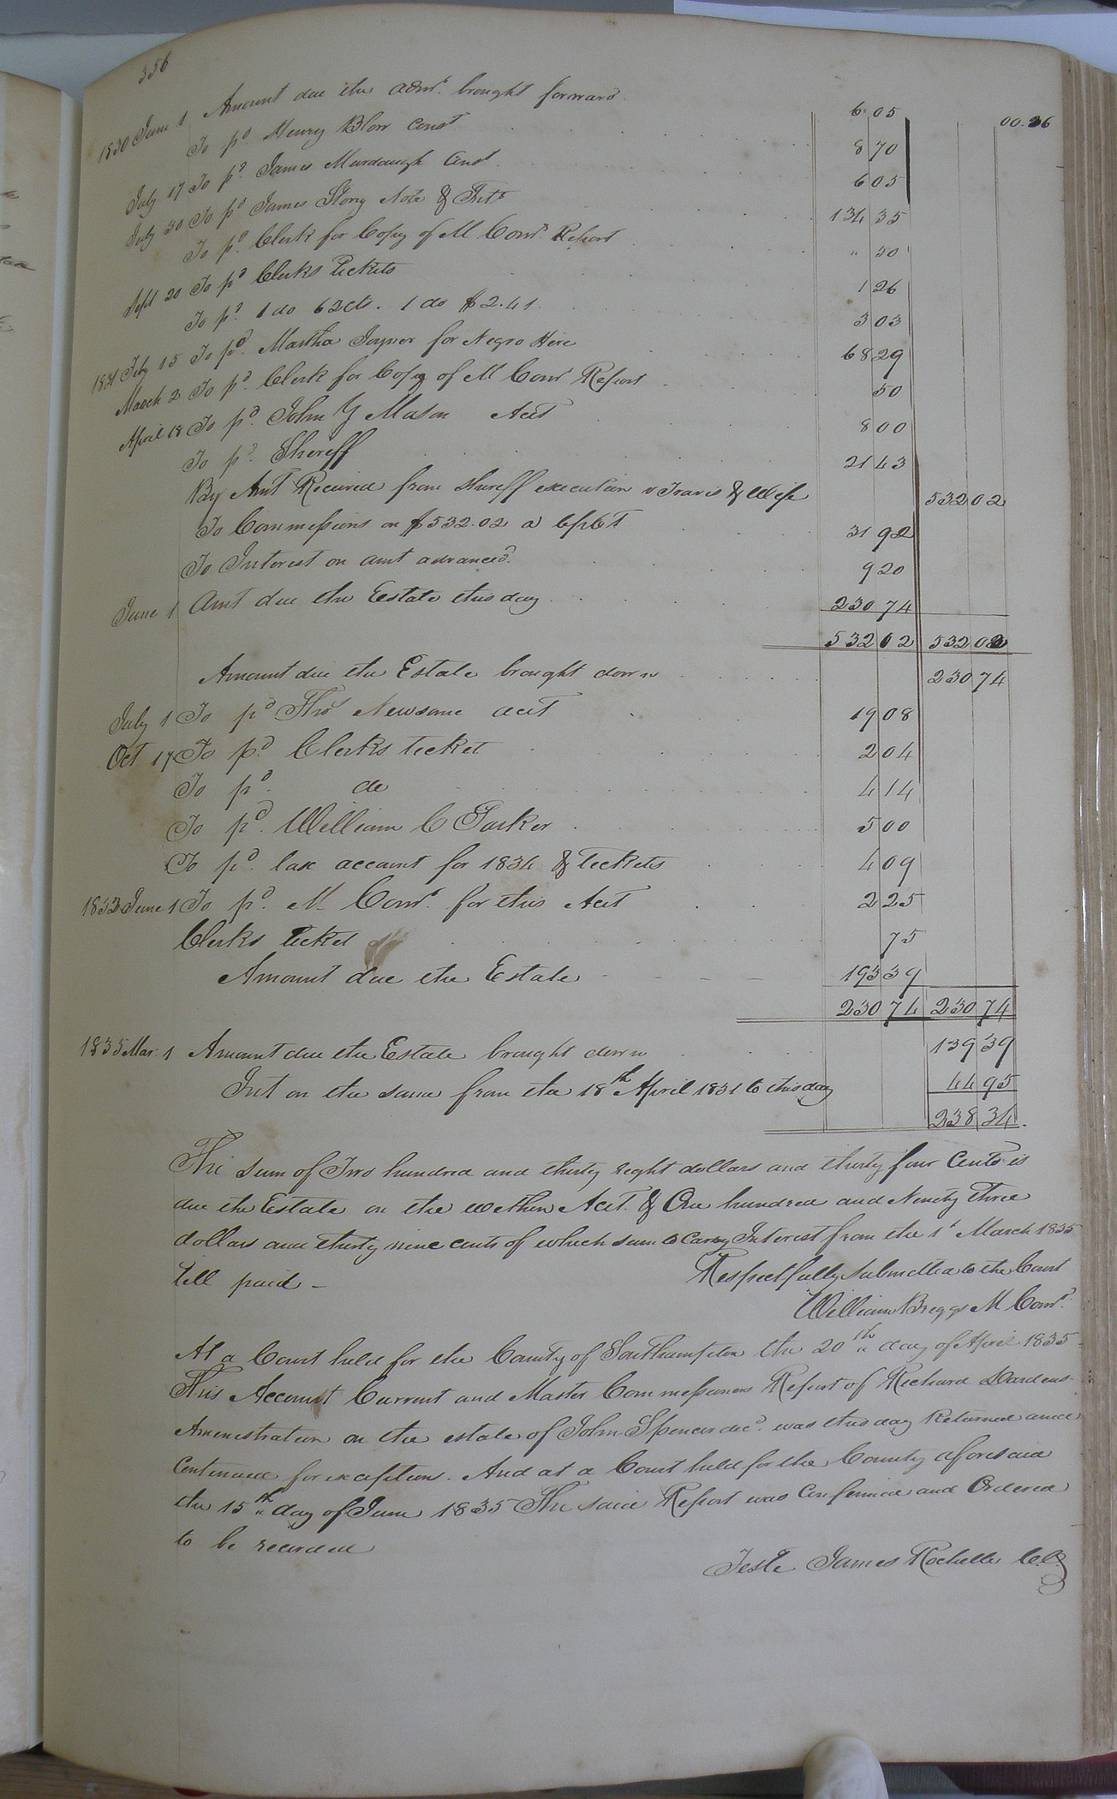 356
1830 June 1 Amount due the admr. brought forward 6 05 00.26
To pd Henry Blow Const 8 70
July 17 To pd. James Murdaugh Const 6 05
July 30 To pd James Story Note & Int 134 35
To pd. Clerk for Copy of M Comr. Report " 50
Sept 20 To pd Clerks Tickets 1 26
To pd. 1 do 62cts. 1 do $2.41 3 03
1831 Feby 15 To pd. Martha Joyner for Negro Hire 68 29
March 2 To pd. Clerk for Copy of M Comr Report 50
April 18 To pd. John Y Mason Act 8 00
To pd. Sheriff 21 43
By Amt Received from sheriff execution v Travis & Wife 532 02
To Commissions on $532.02 a 6prCt 31 92
To Interest on amt advanced. 9 20
June 1 Amt due the Estate this day 230 74
532 02 532 02
Amount due the Estate brought down 230 74
July 1 To pd Thos Newsome act 19 08
Oct 17 To pd. Clerks ticket 2 04
To pd. do 4 14
To pd. William C Parker 5 00
To pd. tax account for 1834 & tickets 4 09
1832 June 1 To pd. M Comr. for this Act 2 25
Clerks ticket 75
Amount due the Estate 193 39
230 74 230 74
1835 Mar 1 Amount due the Estate brought down 193 39
Int on the same from the 18th April 1831 to this day 44 95
238 34.
The sum of Two hundred and thirty eight dollars and thirty four Cents is
due the Estate on the within Act. & One hundred and Ninety three
dollars and thirty nine cents of which sum to Carry Interest from the 1st March 1835
till paid – Respectfully submitted to the Court
William Briggs M Comr.
At a Court held for the County of Southampton the 20th day of April 1835
This Account Current and Master Commissioners Report of Richard Dardens
Aministration on the estate of John Spencer decd. was this day Returned and
Continued for exceptions. And at a Court held for the County aforesaid
the 15th day of June 1835 The said Report was Confirmed and Ordered
to be recorded
Teste James Rochelle C.C.